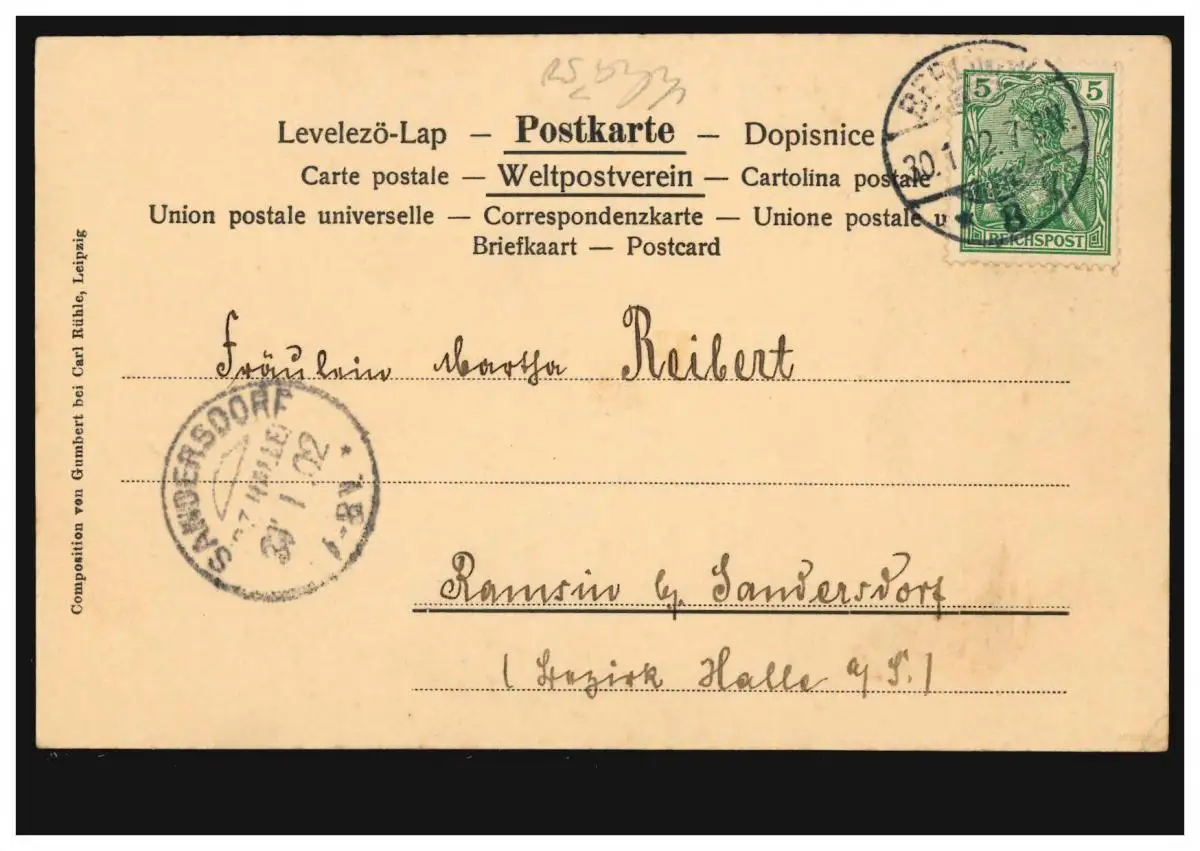 Levelezö-Lap — Postkarte — Dopisnice
Carte postale — Weltpostverein — Cartolina postale
Union postale universelle — Correspondenzkarte — Unione postale u
Briefkaart — Postcard
5 5
REICHSPOST
30.1.02.
* B
Composition von Gumbert bei Carl Rühle, Leipzig
Fräulein Martha Reibert
SANDERSDORF
BZ. HALLE
1 02
* 8-1
Ramsin b/ Sandersdorf
(Bezirk Halle a/S.)